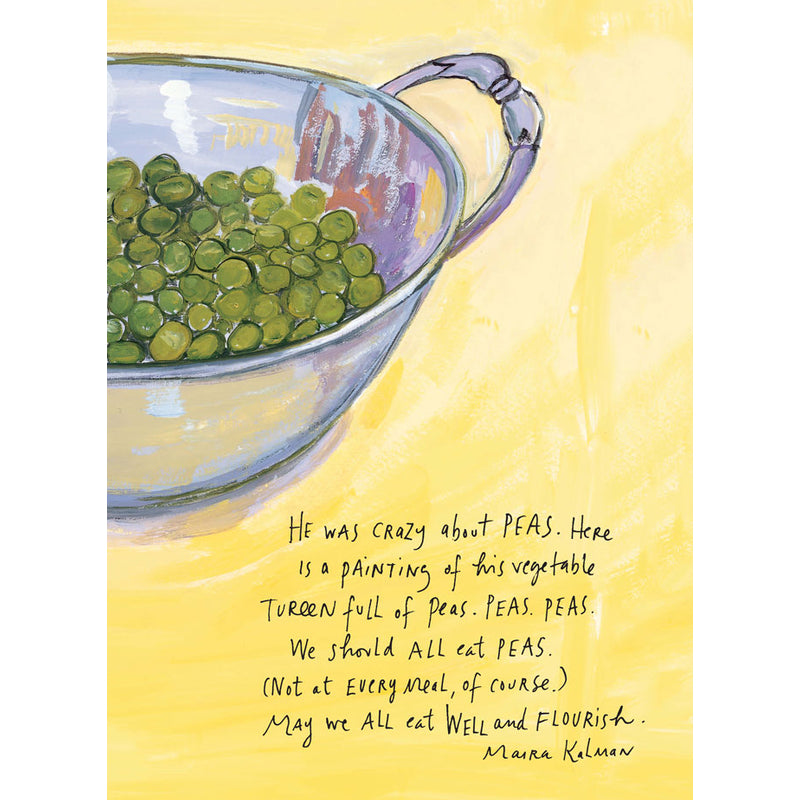 HE WAS CRAZY about PEAS. Here
is a PAINTING of his vegetable
TUREEN full of peas. PEAS. PEAS.
We should ALL eat PEAS.
(Not at EVERY Meal, of course.)
MAY we ALL eat WELL and FLOURISH.
Maira Kalman